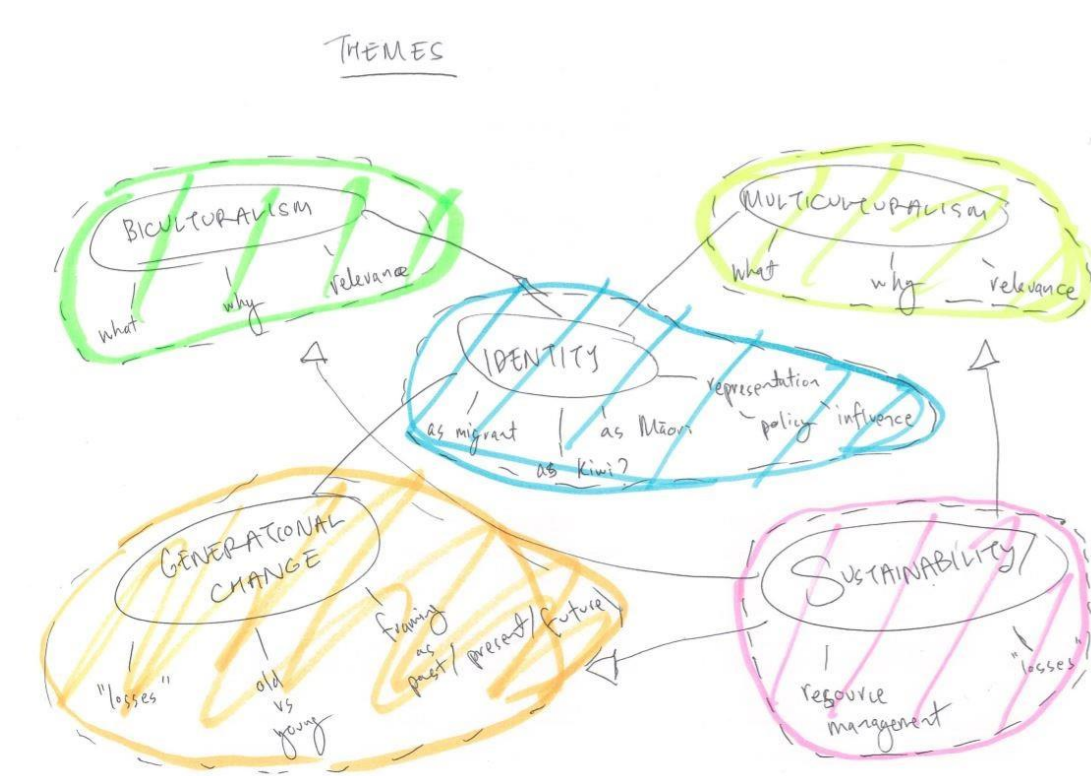 THEMES
BICULTURALISM
what
why
relevance
MULTICULTURALISM
what
why
relevance
IDENTITY
as migrant
as Kiwi?
as Māori
representation
policy influence
GENERATIONAL
CHANGE
"losses"
old
vs
young
framing
as
past/present/future
SUSTAINABILITY
resource
management
"losses"